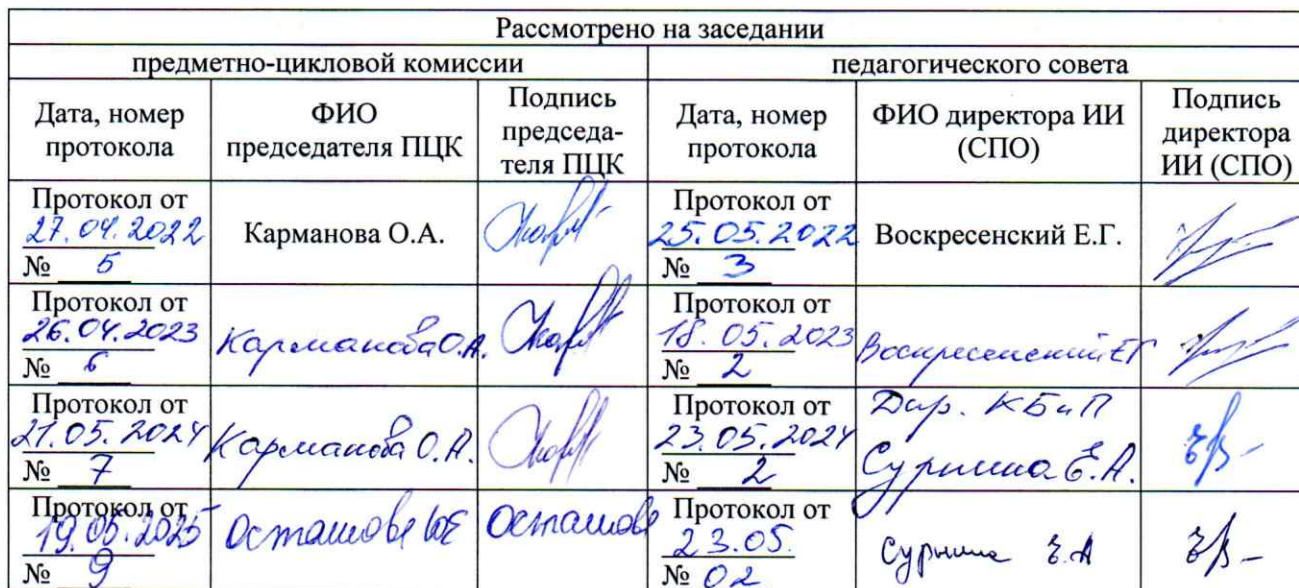 Рассмотрено на заседании
предметно-цикловой комиссии
педагогического совета
Дата, номер протокола
ФИО председателя ПЦК
Подпись председа-теля ПЦК
Дата, номер протокола
ФИО директора ИИ (СПО)
Подпись директора ИИ (СПО)
Протокол от
27.04.2022
№ 5
Карманова О.А.
Протокол от
25.05.2022
№ 3
Воскресенский Е.Г.
Протокол от
26.04.2023
№ 6
Карманова О.А.
Протокол от
18.05.2023
№ 2
Воскресенский ЕГ
Протокол от
21.05.2024
№ 7
Карманова О.А.
Протокол от
23.05.2024
№ 2
Дир. КБиП
Е.А.
Протокол от
19.05.2025
№ 9
Осташова
Осташова
Протокол от
23.05.
№ 02
Е.А